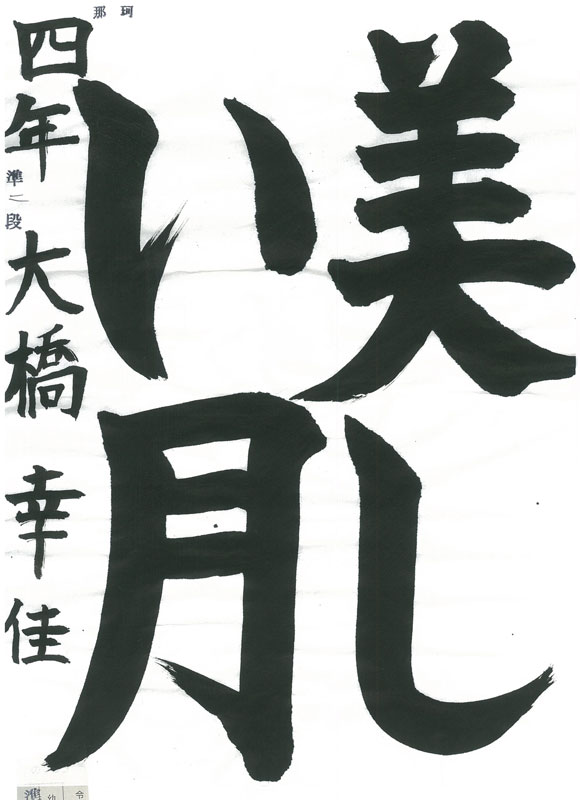 美し
い月
那珂
四年 準二段 大橋 幸佳
準 幼 令